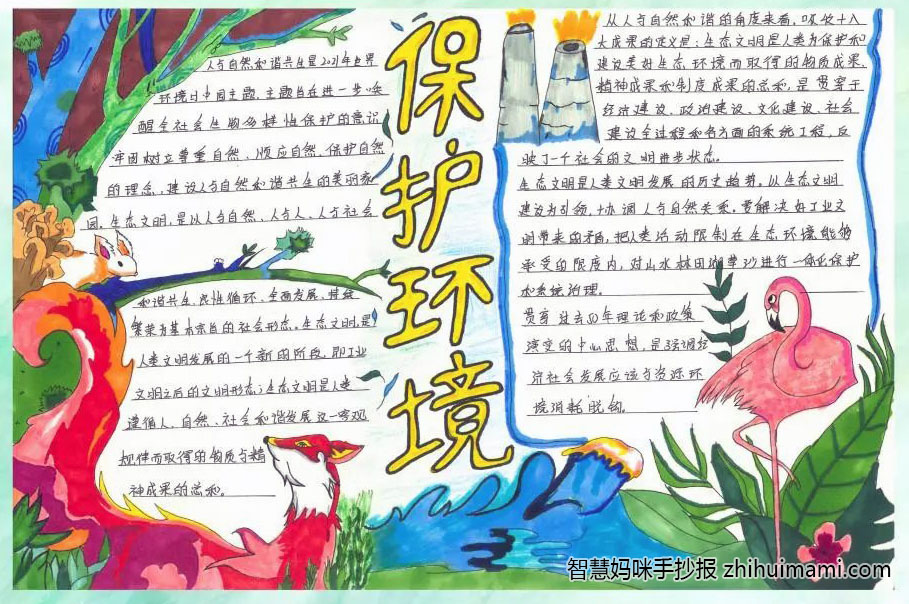 保护环境
人与自然和谐共生是2021年世界
环境日中国主题,主题旨在进一步唤
醒全社会生物多样性保护的意识
牢固树立尊重自然、顺应自然、保护自然
的理念,建设人与自然和谐共生的美丽家
园。生态文明,是以人与自然、人与人、人与社会
和谐共生、良性循环、全面发展、持续
繁荣为基本宗旨的社会形态。生态文明,是
人类文明发展的一个新的阶段,即工业
文明之后的文明形态;生态文明是人类
遵循人、自然、社会和谐发展这一客观
规律而取得的物质与精
神成果的总和。
从人与自然和谐的角度来看,吸收十八
大成果的定义是:生态文明是人类为保护和
建设美好生态环境而取得的物质成果,
精神成果和制度成果的总和,是贯穿于
经济建设、政治建设、文化建设、社会
建设全过程和各方面的系统工程,反
映了一个社会的文明进步状态。
生态文明是人类文明发展的历史趋势。以生态文明
建设为引领,协调人与自然关系。要解决好工业文
明带来的矛盾,把人类活动限制在生态环境能够
承受的限度内,对山水林田湖草沙进行一体化保护
和系统治理。
贯穿过去50年理论和政策
演变的中心思想,是强调经
济社会发展应该与资源环
境消耗脱钩。
智慧妈咪手抄报 zhihuimami.com